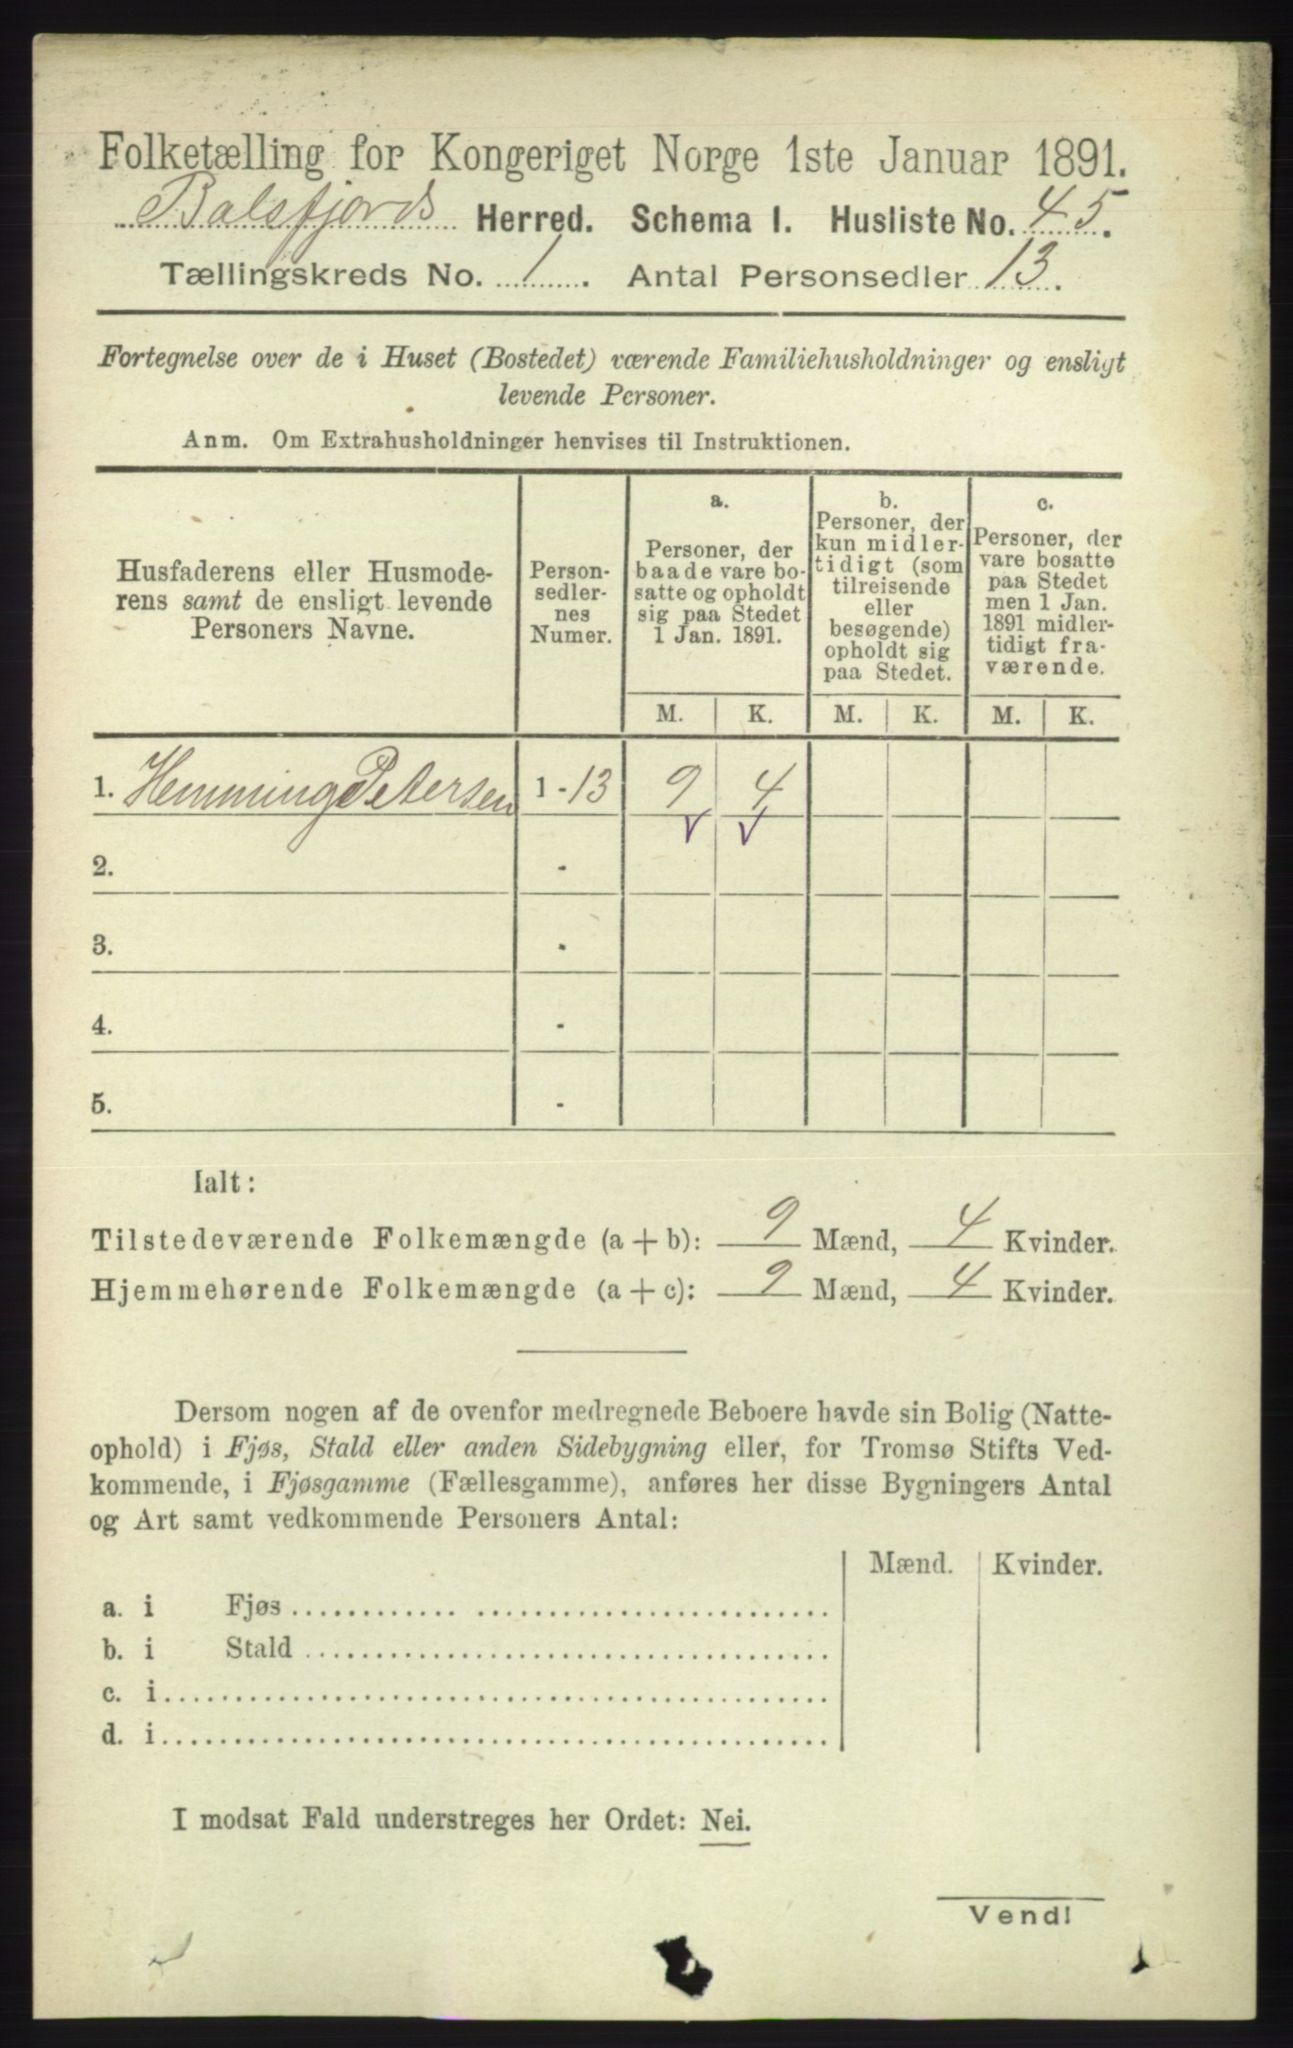 Folketælling for Kongeriget Norge 1ste Januar 1891.
Balsfjords Herred. Schema I. Husliste No. 45.
Tællingskreds No. 1. Antal Personsedler 13.
Fortegnelse over de i Huset (Bostedet) værende Familiehusholdninger og ensligt
levende Personer.
Anm. Om Extrahusholdninger henvises til Instruktionen.
Husfaderens eller Husmode-
rens samt de ensligt levende
Personers Navne.
Person-
sedler-
nes
Numer.
a.
Personer, der
baade vare bo-
satte og opholdt
sig paa Stedet
1 Jan. 1891.
b.
Personer, der
kun midler-
tidigt (som
tilreisende
eller
besøgende)
opholdt sig
paa Stedet.
c.
Personer, der
vare bosatte
paa Stedet
men 1 Jan.
1891 midler-
tidigt fra-
værende.
M. K. M. K. M. K.
1. Hemming Petersen 1-13 9 4
2. -
3. -
4. -
5. -
Ialt:
Tilstedeværende Folkemængde (a + b): 9 Mænd, 4 Kvinder.
Hjemmehørende Folkemængde (a + c): 9 Mænd, 4 Kvinder.
Dersom nogen af de ovenfor medregnede Beboere havde sin Bolig (Natte-
ophold) i Fjøs, Stald eller anden Sidebygning eller, for Tromsø Stifts Ved-
kommende, i Fjøsgamme (Fællesgamme), anføres her disse Bygningers Antal
og Art samt vedkommende Personers Antal:
Mænd. Kvinder.
a. i Fjøs
b. i Stald
c. i
d. i
I modsat Fald understreges her Ordet: Nei.
Vend!